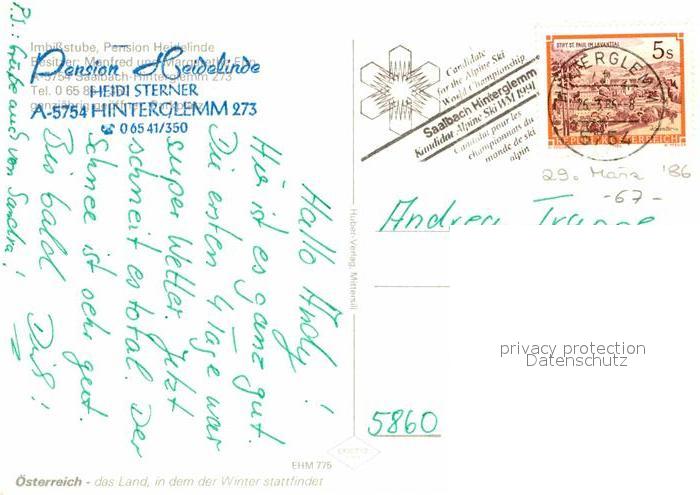 Imbißstube, Pension Heidelinde
Pension Heidelinde
HEIDI STERNER
A-5754 HINTERGLEMM 273
☎ 0 65 41/350
Hallo Andy!
Hier ist es ganz gut.
Die ersten 4 Tage war
super Wetter. Jetzt
schneit es total. Der
Schnee ist sehr gut.
Bis bald
P.S.: Grüße auch von Sandra!
Österreich - das Land, in dem der Winter stattfindet
EHM 775
Huber-Verlag, Mittersill
Candidate
for the Alpine Ski
World Championship
Saalbach Hinterglemm
Kandidat Alpine Ski WM 1991
Candidat pour les
championnats du
monde de ski
alpin
STIFT ST. PAUL IM LAVANTTAL
5 S
REPUBLIK ÖSTERREICH
HINTERGLEMM
5754
29. März '86
-67-
Andrea
privacy protection
Datenschutz
5860